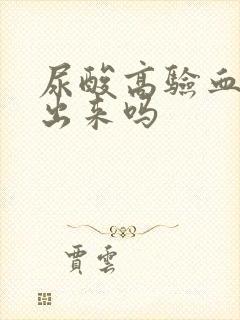 尿酸高驗血
出来吗
賈雲